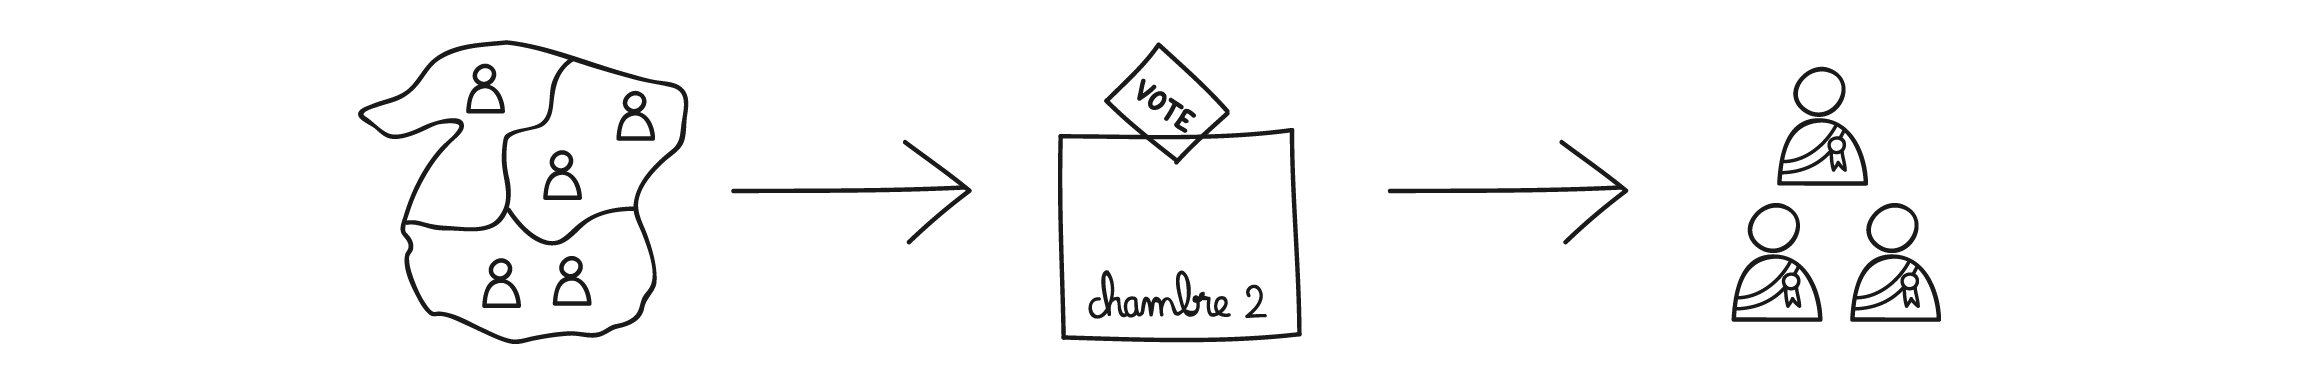 VOTE
chambre 2